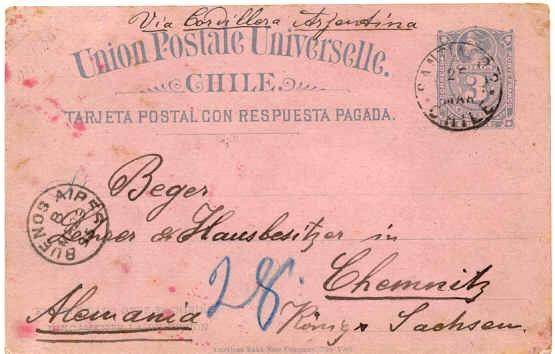 Via Cordillera Argentina
Union Postale Universelle.
CHILE.
TARJETA POSTAL CON RESPUESTA PAGADA.
SANTIAGO
CHILE
3
Beger
BUENOS AIRES
& Hausbesitzer in
28.
Chemnitz
Alemania
König. Sachsen.
American Bank Note Company, New York